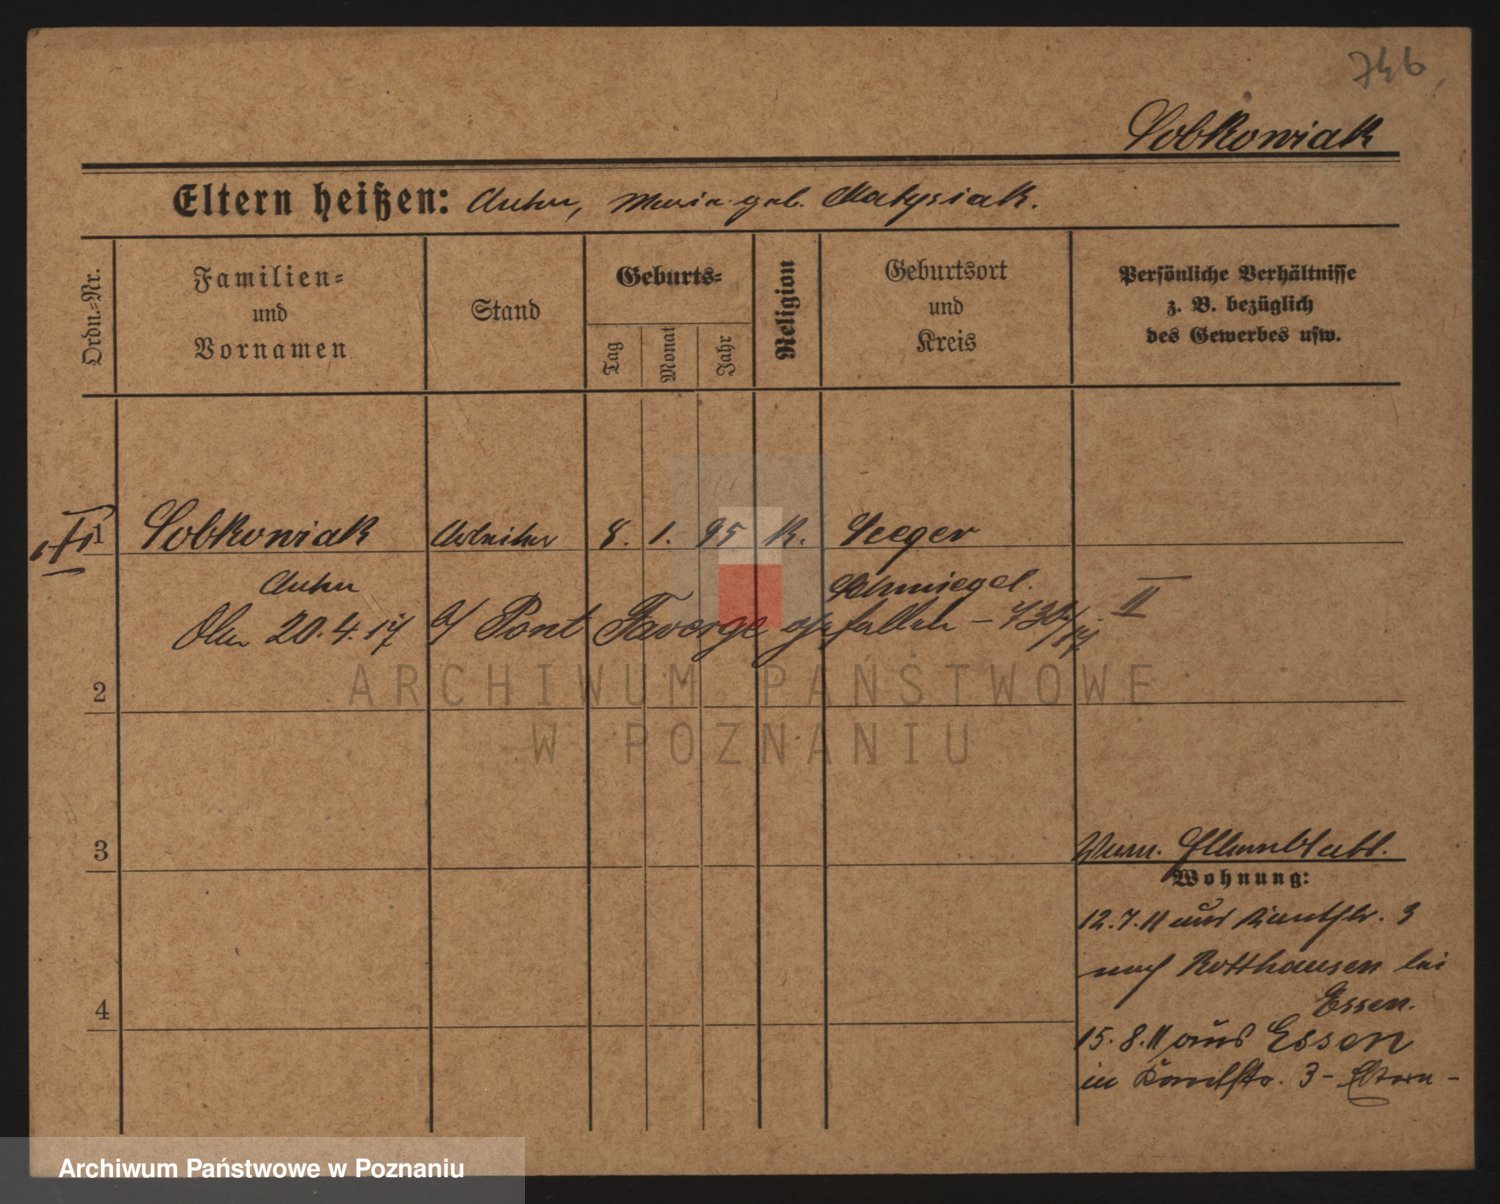 746
Sobkowiak
Eltern heißen: Anton, Maria geb. Matysiak.
Ordn.-Nr.
Familien-
und
Vornamen
Stand
Geburts-
Tag
Monat
Jahr
Religion
Geburtsort
und
Kreis
Persönliche Verhältnisse
z. B. bezüglich
des Gewerbes usw.
1 Sobkowiak Arbeiter 8. 1. 95 K. Seeger
Anton Schmiegel.
20.4.17 a/ Pont Faverge gefallen – II
2
3
4
Wohnung:
12.7.11 aus Kantstr. 3
nach Rotthausen bei
Essen.
15.8.11 aus Essen
in Kantstr. 3 - Eltern -
ARCHIWUM PAŃSTWOWE
W POZNANIU
Archiwum Państwowe w Poznaniu